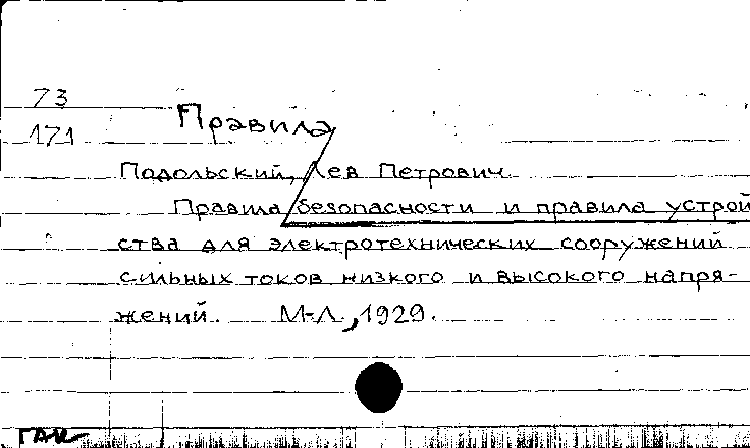 73
171
Правила
Подольский, Лев Петрович
Правила безопасности и правила устрой
ства для электротехнических сооружений
сильных токов низкого и высокого напря-
жений. М-Л., 1929.
ГАК